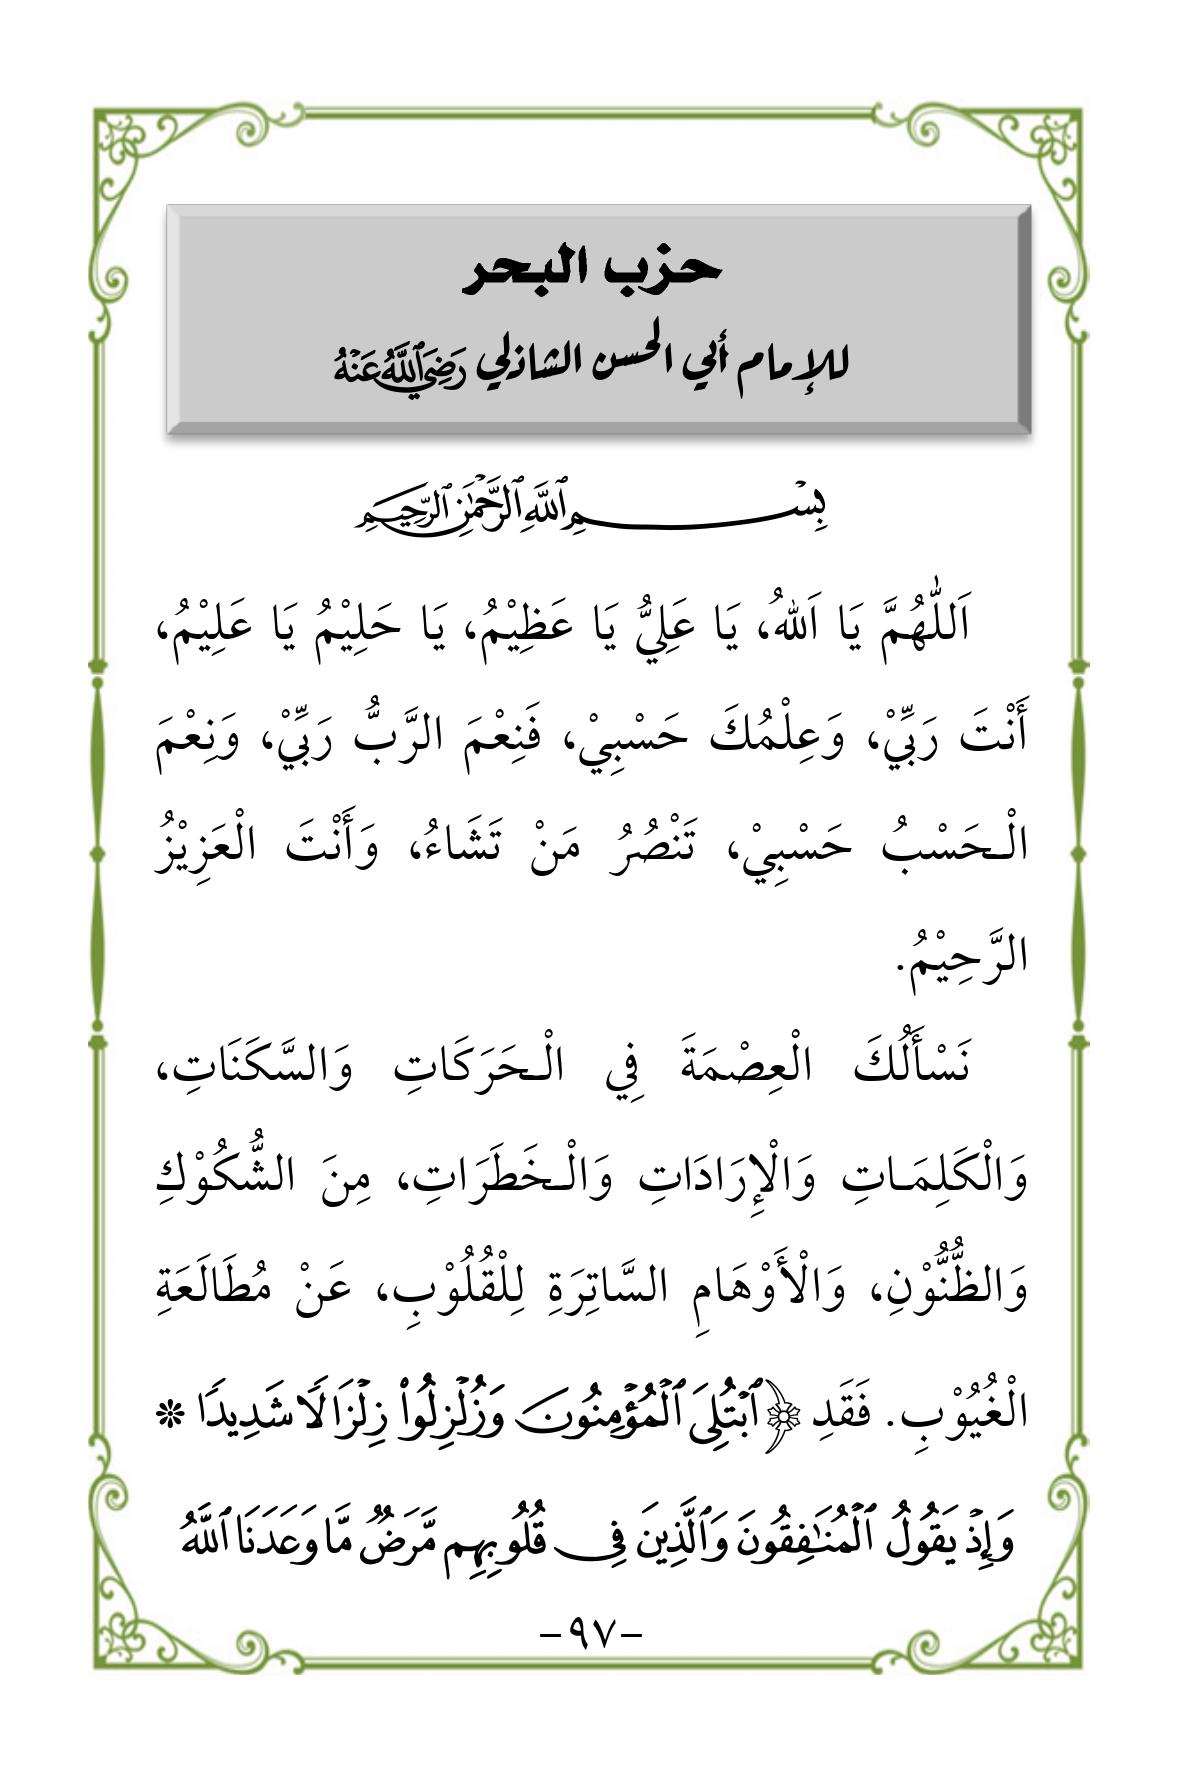 حزب البحر
للإمام أبي الحسن الشاذلي رَضِيَ اللَّهُ عَنْهُ
بِسْمِ اللَّهِ الرَّحْمَٰنِ الرَّحِيمِ
اَللّٰهُمَّ يَا اَللهُ، يَا عَلِيُّ يَا عَظِيْمُ، يَا حَلِيْمُ يَا عَلِيْمُ،
أَنْتَ رَبِّيْ، وَعِلْمُكَ حَسْبِيْ، فَنِعْمَ الرَّبُّ رَبِّيْ، وَنِعْمَ
الْـحَسْبُ حَسْبِيْ، تَنْصُرُ مَنْ تَشَاءُ، وَأَنْتَ الْعَزِيْزُ
الرَّحِيْمُ.
نَسْأَلُكَ الْعِصْمَةَ فِي الْـحَرَكَاتِ وَالسَّكَنَاتِ،
وَالْكَلِمَـاتِ وَالْإِرَادَاتِ وَالْـخَطَرَاتِ، مِنَ الشُّكُوْكِ
وَالظُّنُّوْنِ، وَالْأَوْهَامِ السَّاتِرَةِ لِلْقُلُوْبِ، عَنْ مُطَالَعَةِ
الْغُيُوْبِ. فَقَدِ ﴿ٱبْتُلِىَ ٱلْمُؤْمِنُونَ وَزُلْزِلُوا۟ زِلْزَالًا شَدِيدًا ❊
وَإِذْ يَقُولُ ٱلْمُنَـٰفِقُونَ وَٱلَّذِينَ فِى قُلُوبِهِم مَّرَضٌ مَّا وَعَدَنَا ٱللَّهُ
-٩٧-